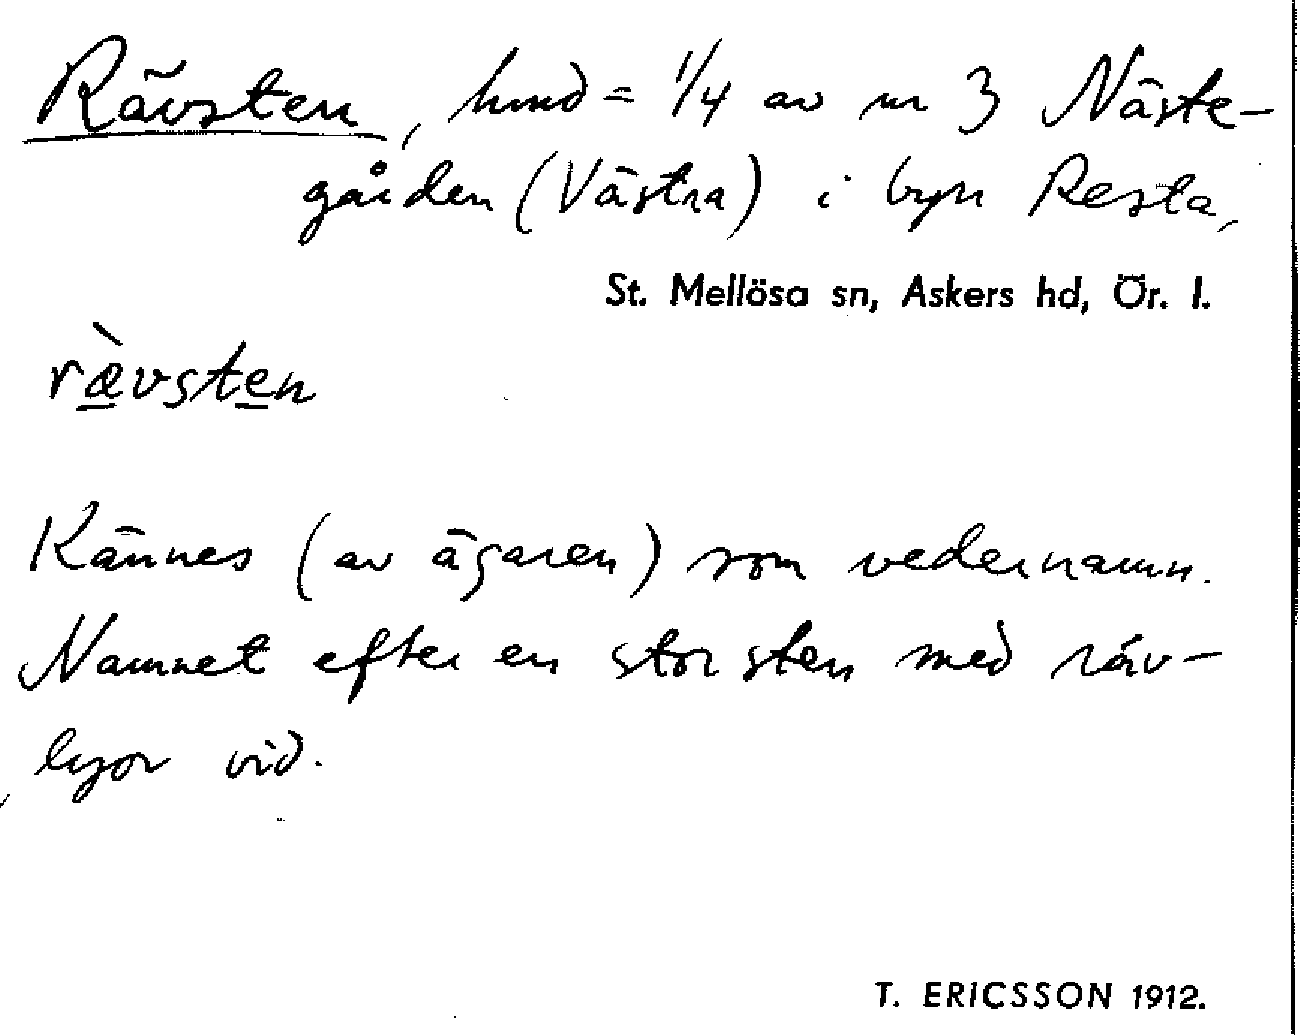 Rävsten, hmd = 1/4 av nr 3 Näste-
gården (Västra) i byn Resta,
St. Mellösa sn, Askers hd, Ör. l.
rævsten
Kännes (av ägaren) som vedernamn.
Namnet efter en stor sten med räv-
lyor vid.
T. ERICSSON 1912.